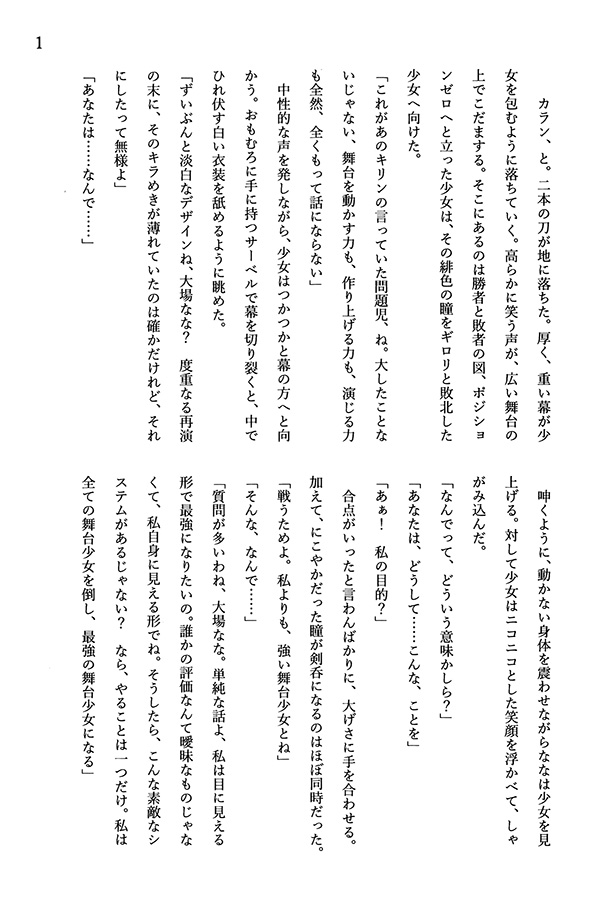 1
　カラン、と。二本の刀が地に落ちた。厚く、重い幕が少
女を包むように落ちていく。高らかに笑う声が、広い舞台の
上でこだまする。そこにあるのは勝者と敗者の図、ポジショ
ンゼロへと立った少女は、その緋色の瞳をギロリと敗北した
少女へ向けた。
「これがあのキリンの言っていた問題児、ね。大したことな
いじゃない、舞台を動かす力も、作り上げる力も、演じる力
も全然、全くもって話にならない」
　中性的な声を発しながら、少女はつかつかと幕の方へと向
かう。おもむろに手に持つサーベルで幕を切り裂くと、中で
ひれ伏す白い衣装を舐めるように眺めた。
「ずいぶんと淡白なデザインね、大場なな？　度重なる再演
の末に、そのキラめきが薄れていたのは確かだけれど、それ
にしたって無様よ」
「あなたは……なんで……」
　呻くように、動かない身体を震わせながらななは少女を見
上げる。対して少女はニコニコとした笑顔を浮かべて、しゃ
がみ込んだ。
「なんでって、どういう意味かしら？」
「あなたは、どうして……こんな、ことを」
「あぁ！　私の目的？」
　合点がいったと言わんばかりに、大げさに手を合わせる。
加えて、にこやかだった瞳が剣呑になるのはほぼ同時だった。
「戦うためよ。私よりも、強い舞台少女とね」
「そんな、なんで……」
「質問が多いわね、大場なな。単純な話よ、私は目に見える
形で最強になりたいの。誰かの評価なんて曖昧なものじゃな
くて、私自身に見える形でね。そうしたら、こんな素敵なシ
ステムがあるじゃない？　なら、やることは一つだけ。私は
全ての舞台少女を倒し、最強の舞台少女になる」